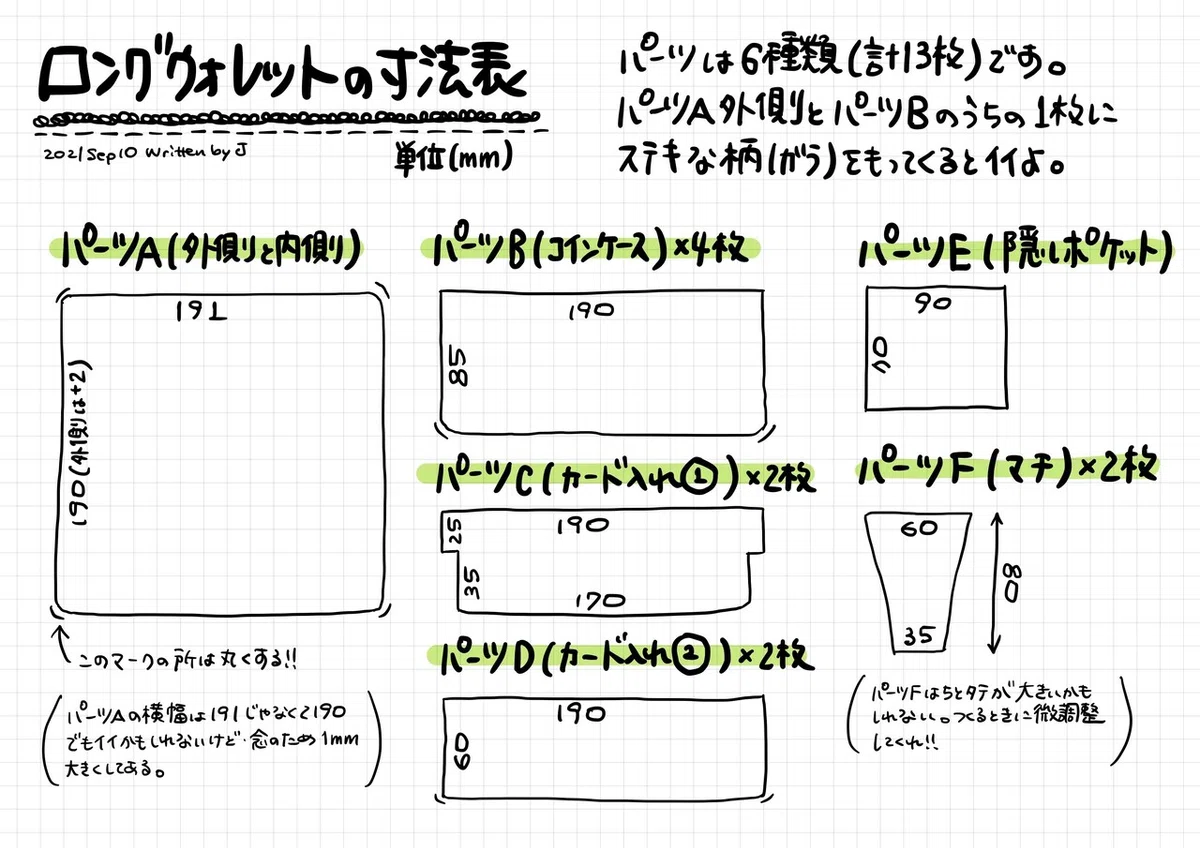 ロングウォレットの寸法表
2021 Sep 10 Written by J
単位(mm)
パーツは6種類(計13枚)です。
パーツA外側とパーツBのうちの1枚に
ステキな柄(がら)をもってくるとイイよ。
パーツA(外側と内側)
191
190(外側は+2)
このマークの所は丸くする!!
(パーツAの横幅は191じゃなくて190
でもイイかもしれないけど、念のため1mm
大きくしてある。)
パーツB(コインケース)×4枚
190
85
パーツC(カード入れ①)×2枚
25
190
35
170
パーツD(カード入れ②)×2枚
190
60
パーツE(隠しポケット)
90
70
パーツF(マチ)×2枚
60
80
35
(パーツFはちとタテが大きいかも
しれない。つくるときに微調整
してくれ!!)